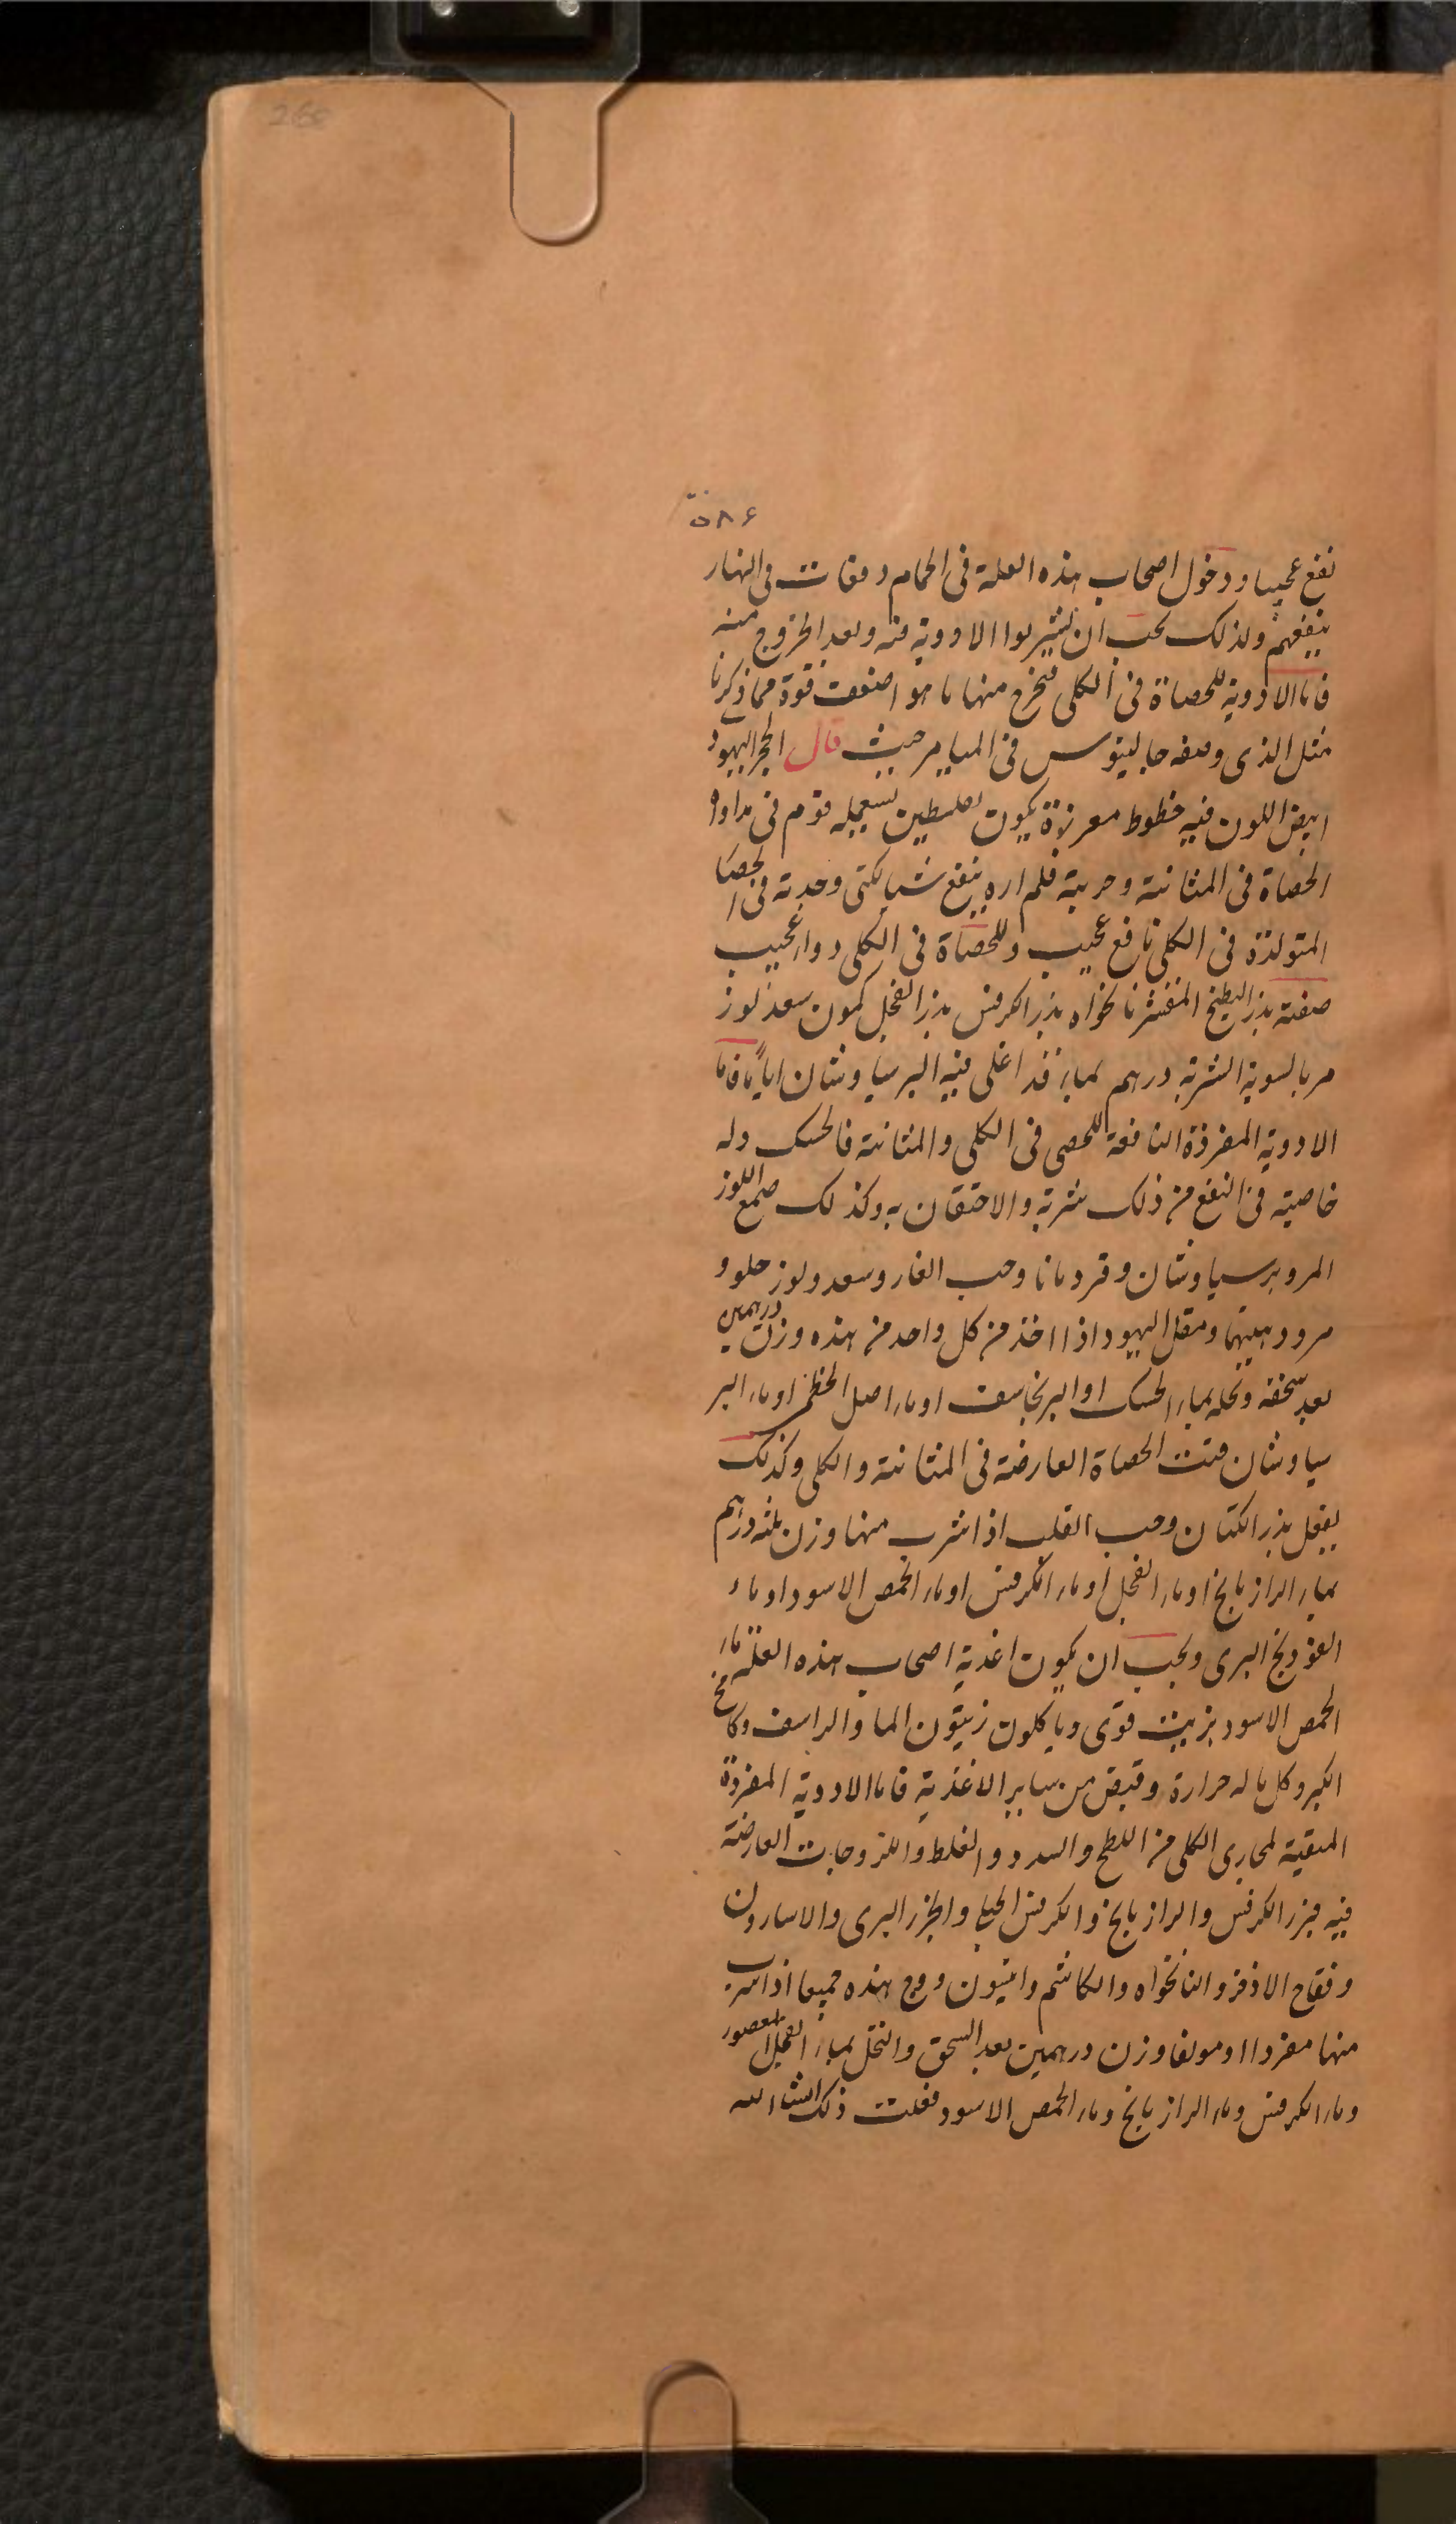 260
٥٨٤
نفع عجيبا ودخول اصحاب هذه العلة فى الحمام دفعات فى النهار
ينفعهم ولذلك يجب ان يشربوا الادوية فيه وبعد الخروج منه
فاما الادوية للحصاة فى الكلى فيخرج منها ما هو اضعف قوة مما ذكرنا
مثل الذى وصفه جالينوس فى الميامر حيث قال الحجر اليهود
ابيض اللون فيه خطوط معرنزة يكون بفلسطين يستعمله قوم فى مداواة
الحصاة فى المثانة وجربته فلم اره ينفع شيا لكنى وجدته فى الحصاة
المتولدة فى الكلى نافع عجيب وللحصاة فى الكلى دواء عجيب
صفته بذر البطيخ المقشر نانخواه بذر الكرفس بذر الفجل كمون سعد لوز
مر بالسوية الشربة درهم بماء قد اغلى فيه البرسياوشان اياما فاما
الادوية المفردة النافعة للحصى فى الكلى والمثانة فالحسك وله
خاصية فى النفع من ذلك شربه والاحتقان به وكذلك صمغ اللوز
المر وبرسياوشان وقردمانا وحب الغار وسعد ولوز حلو و
مر ودهنهما ومقل اليهود اذا اخذ من كل واحد من هذه وزن درهمين
بعد سحقه ونخله بماء الحسك او البرنجاسف او ماء اصل الخطمى او ماء البر
سياوشان فتت الحصاة العارضة فى المثانة والكلى وكذلك
يفعل بذر الكتان وحب القلب اذا شرب منها وزن ثلثه دراهم
بماء الرازيانج او ماء الفجل او ماء الكرفس او ماء الحمص الاسود او ماء
الفودنج البرى ويجب ان يكون اغذية اصحاب هذه العلة ماء
الحمص الاسود بزيت قوى وياكلون زيتون الما والراسف وكامخ
الكبر وكل ما له حرارة وقبض من ساير الاغذية فاما الادوية المفردة
المنقية لمجارى الكلى من اللطخ والسدد والغلظ واللزوجات العارضة
فيه فبزر الكرفس والرازيانج والكرفس الجبلى والجزر البرى والاسارون
وفقاح الاذخر والنانخواه والكاشم وانيسون ووج هذه جميعا اذا شرب
منها مفردا او مولفا وزن درهمين بعد السحق والنخل بماء الفجل المعصور
وماء الكرفس وماء الرازيانج وماء الحمص الاسود فعلت ذلك انشاء الله